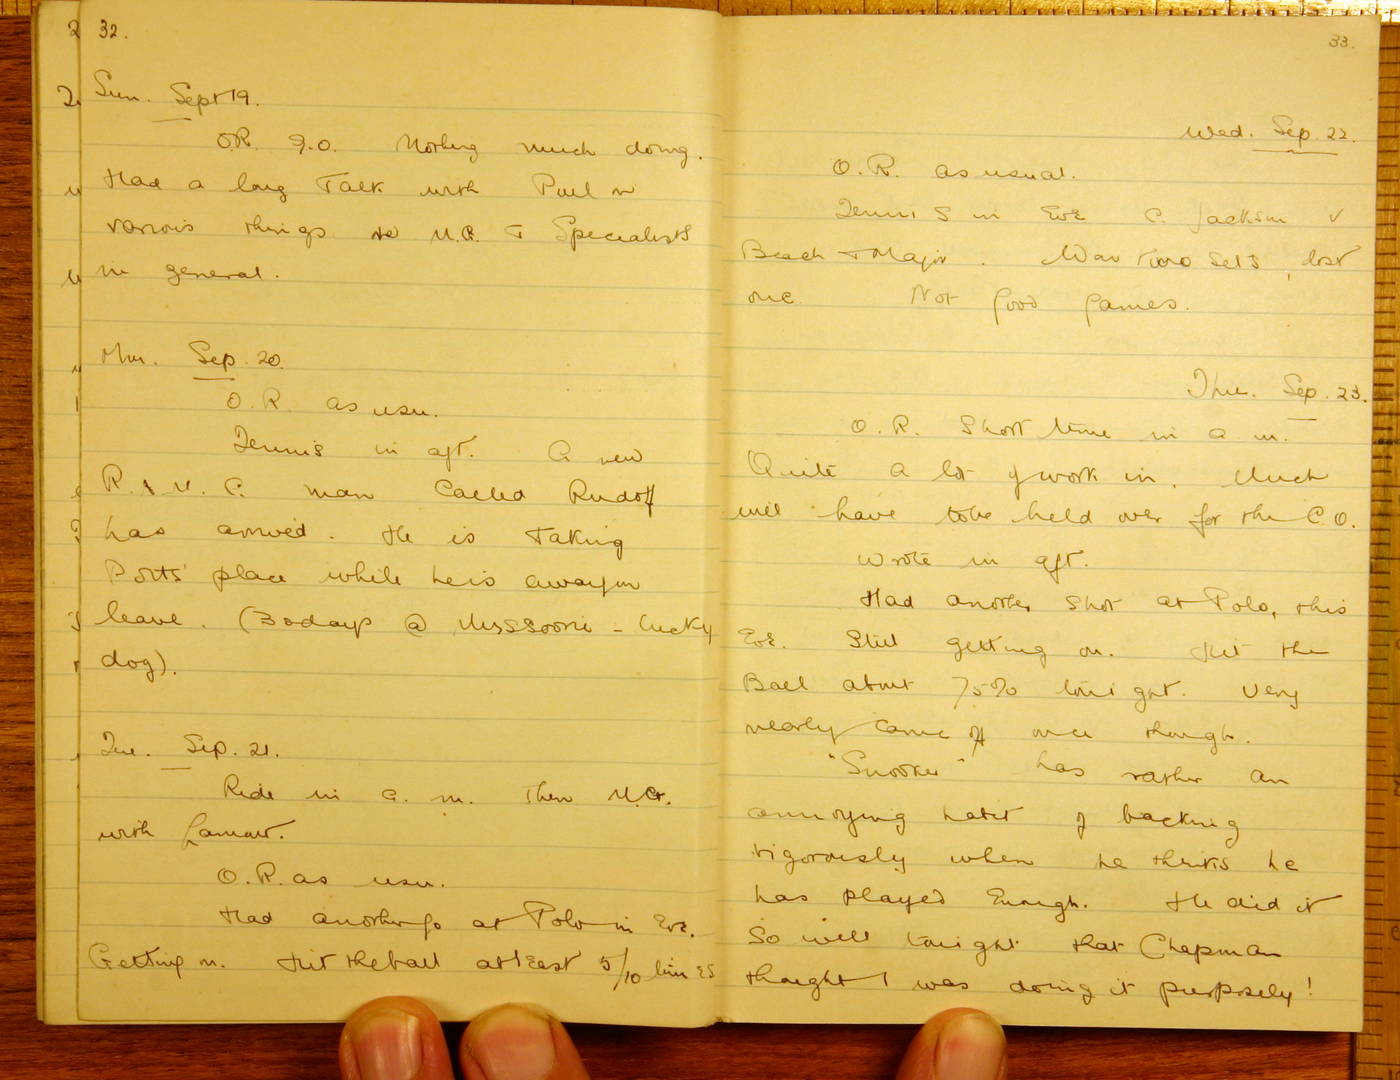 32.
Sun. Sept 19.
O.R. 9.0. Nothing much doing.
Had a long Talk with Paul
various things U.G. + Specialists
in general.
Mon. Sep. 20.
O.R. as usu.
Tennis in aft. A new
man called Rudolf
has arrived. He is Taking
Potts' place while he is away on
leave. (30 days @ Mussoorie - lucky
dog).
Tue. Sep. 21.
Ride in a. m. Then
with Lamont.
O.R. as usu.
Had another go at Polo in Eve.
Getting on. Hit the ball at least 5/10 times
33.
Wed. Sep. 22.
O.R. as usual.
Tennis in Eve C. Jackson v
Beach + Major. Won two sets, lost
one. Not Good Games.
Thu. Sep. 23.
O.R. Short time in a. m.
Quite a lot of work in. Much
will have to be held over for the C.O.
Wrote in aft.
Had another shot at Polo, this
Eve. Still getting on. Hit the
Ball about 75% tonight. Very
nearly came off once though.
"Snooker" has rather an
annoying habit of backing
vigorously when he thinks he
has played Enough. He did it
So well tonight that Chapman
thought I was doing it purposely!